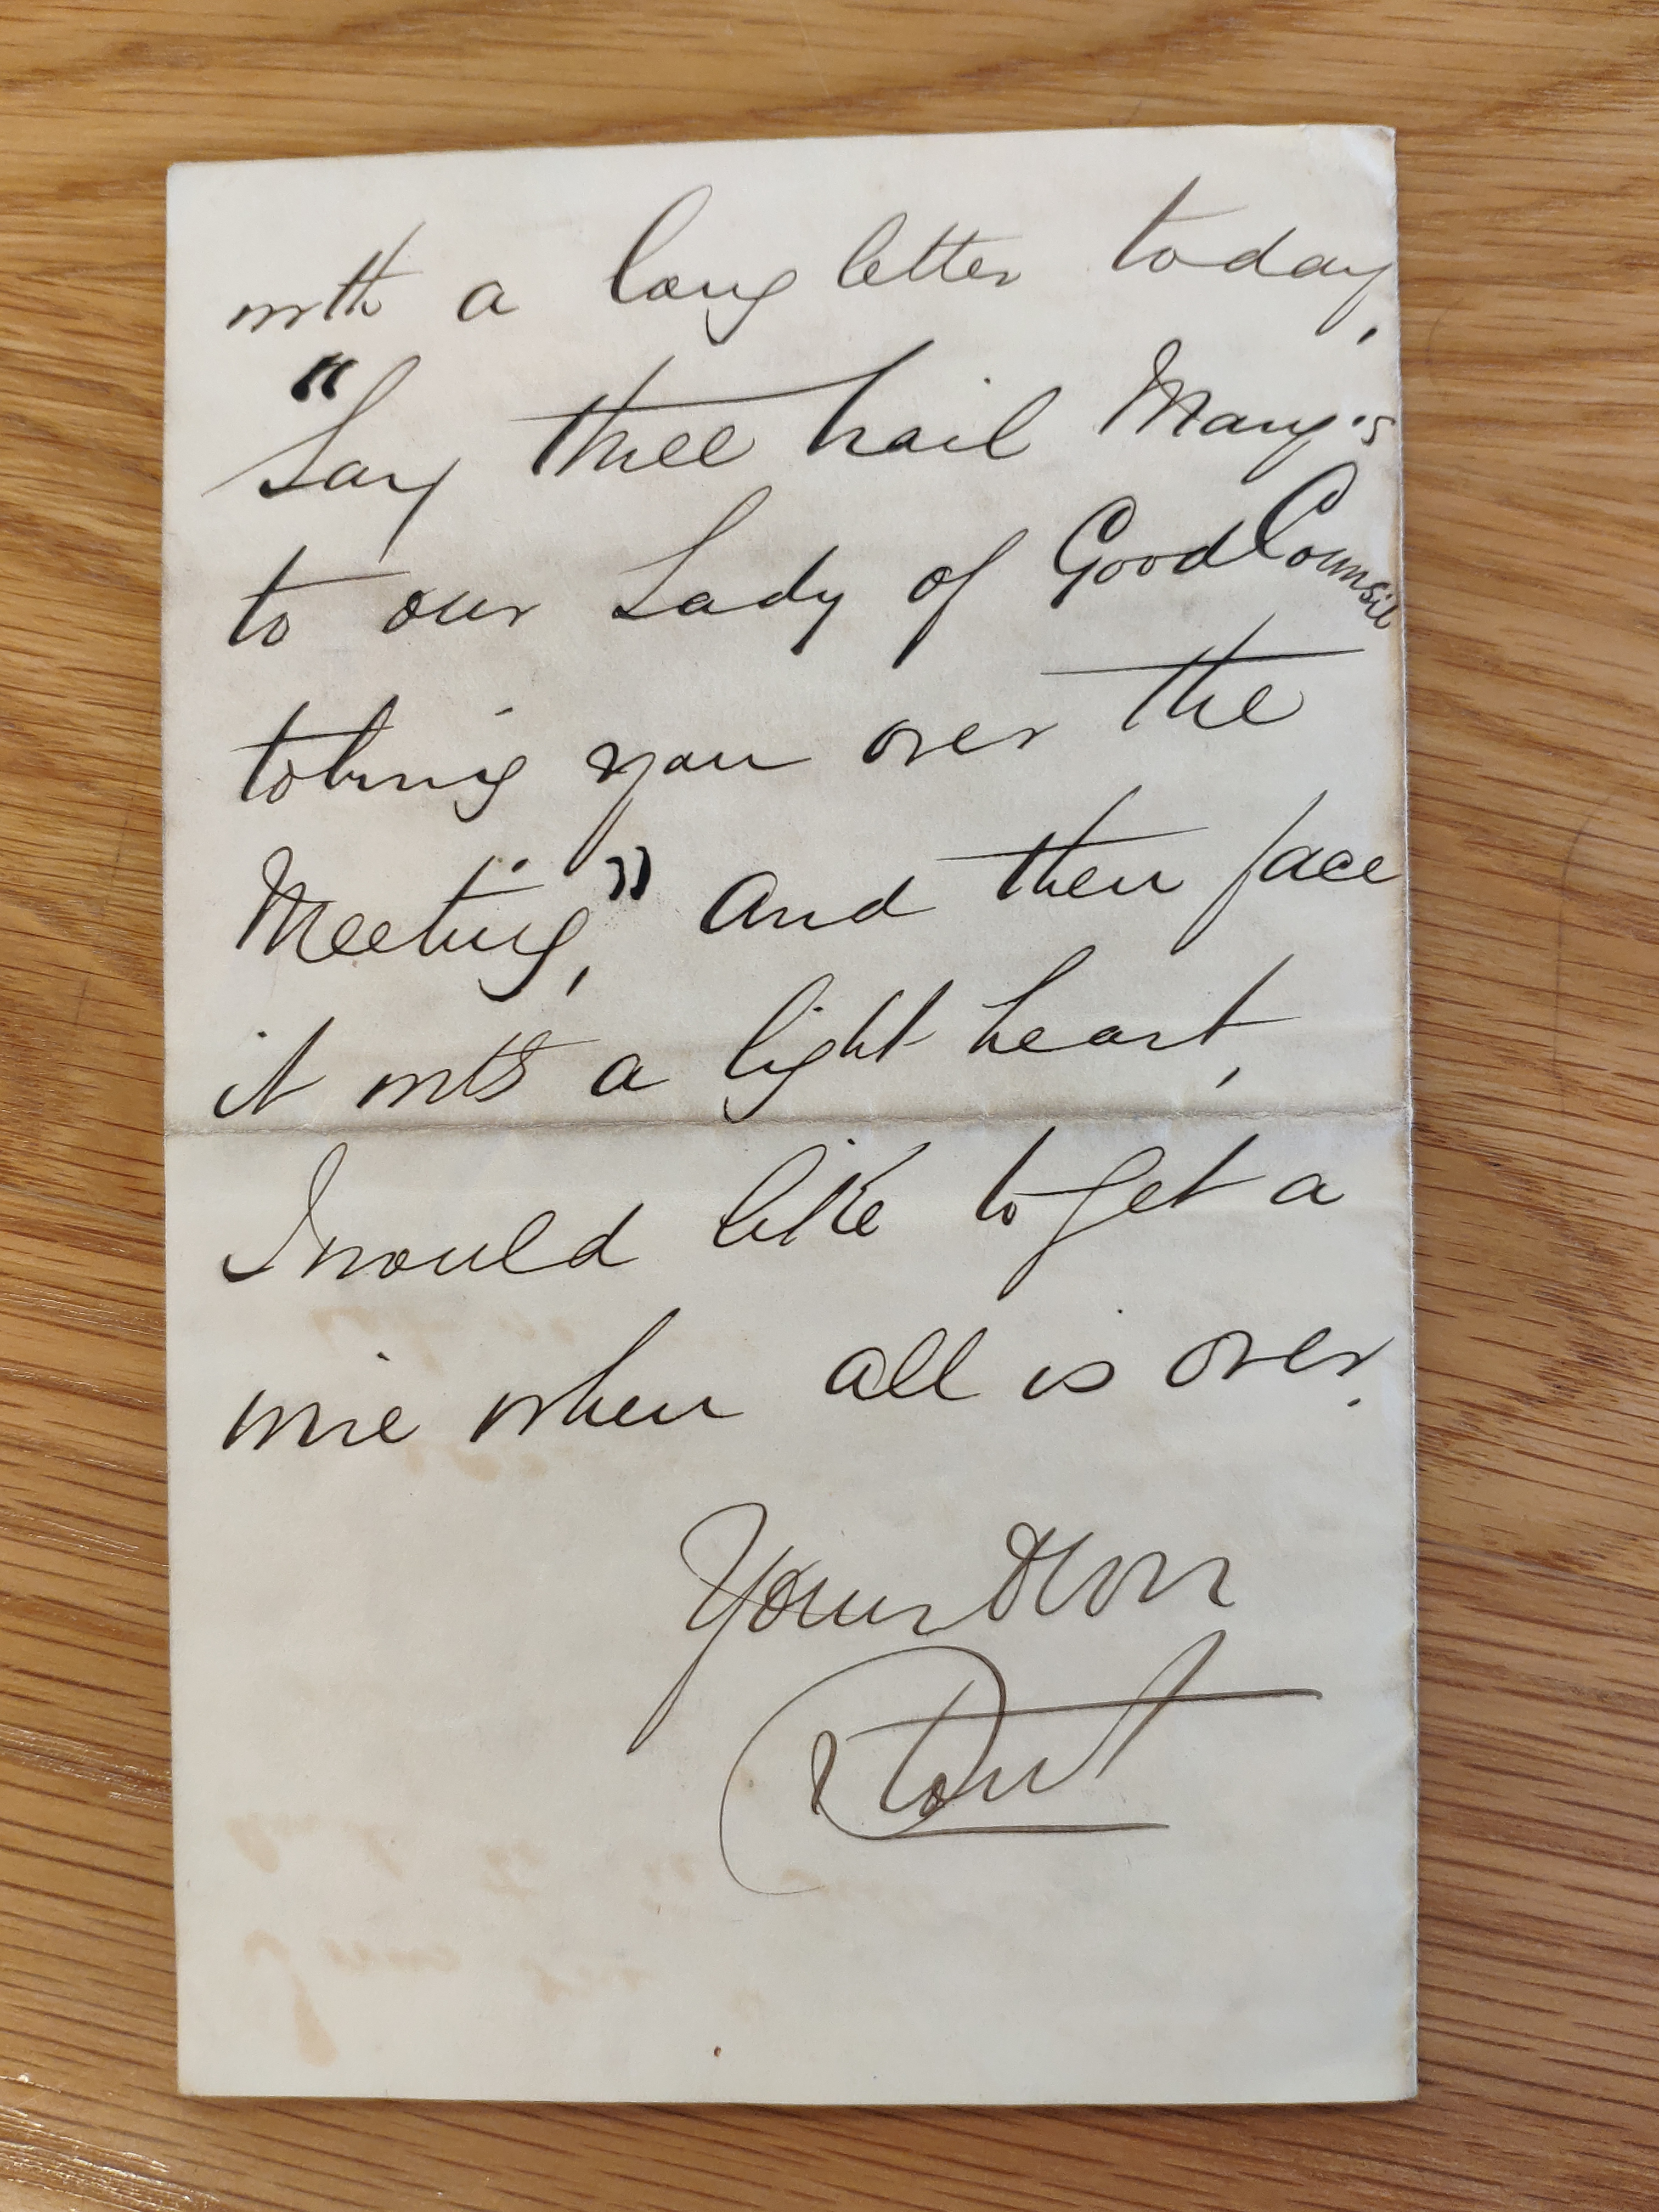 with a long letter today,
"Say three hail Mary's
to our Lady of Good Counsil
to bring you over the
Meeting," and then face
it with a light heart,
I would like to get a
wire when all is over.
Yours